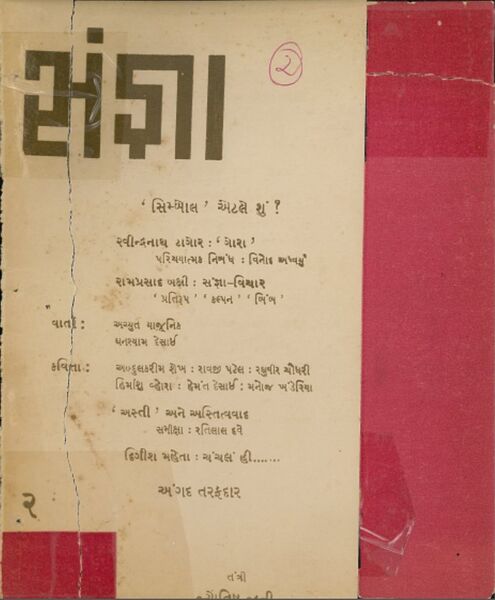 સંજ્ઞા
૨
‘ સિમ્બોલ ’ એટલે શું ?
રવીન્દ્રનાથ ટાગોર : ‘ ગોરા ’
પરિચયાત્મક નિબંધ : વિનોદ અધ્વર્યુ
રામપ્રસાદ બક્ષી : સંજ્ઞા-વિચાર
‘ પ્રતિરૂપ ’ ‘ કલ્પન ’ ‘ બિંબ ’
વાર્તા : અચ્યુત યાજ્ઞિક
ઘનશ્યામ દેસાઈ
કવિતા : અબ્દુલકરીમ શેખ : રાવજી પટેલ : રઘુવીર ચૌધરી
હિમાંશુ વ્હોરા : હેમંત દેસાઈ : મનોજ ખંડેરિયા
‘ અસ્તી ’ અને અસ્તિત્વવાદ
સમીક્ષા : રતિલાલ દવે
દિગીશ મહેતા : ચંચલં હી.......
અંગદ તરફદાર
૨
તંત્રી